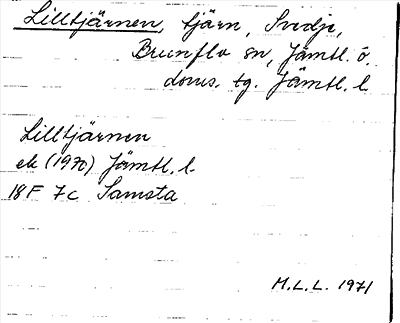 Lilltjärnen, tjärn, Svedje,
Brunflo sn, Jämtl. ö.
doms. tg. Jämtl. l.
Lilltjärnen
ek (1970) Jämtl. l.
18F 7c Samsta
M.L.L. 1971